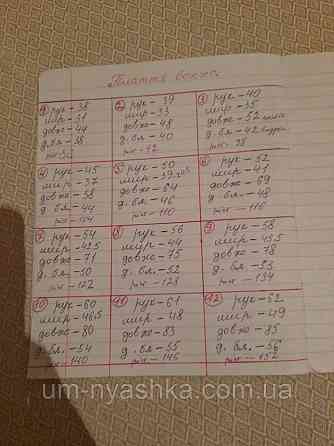 Плаття
① рук - 38
шир - 31
довж - 44
д. бл - 38
② рук - 37
шир - 33
довж - 48
д. бл - 40
рж - 92
③ рук - 40
шир - 35
довж - 52
д. бл - 42
④ рук - 45
шир - 37
довж - 58
д. бл - 44
рж - 104
⑤ рук - 50
шир - 39
довж - 64
д. бл - 46
рж - 110
6 рук - 52
шир - 41
довж - 69
д. бл - 48
рж - 116
7 рук - 54
шир - 42,5
довж - 71
д. бл - 50
рж - 122
8 рук - 56
шир - 44
довж - 75
д. бл - 52
рж - 128
⑨ рук - 58
шир - 45,5
довж - 78
д. бл - 53
рж - 134
⑩ рук - 60
шир - 46,5
довж - 80
д. бл. - 54
рж - 140
⑪ рук - 61
шир - 48
довж - 83
д. бл - 55
рж - 146
⑫ рук - 62
шир - 49
довж - 85
д. бл. - 56
рж - 152
um-nyashka.com.ua